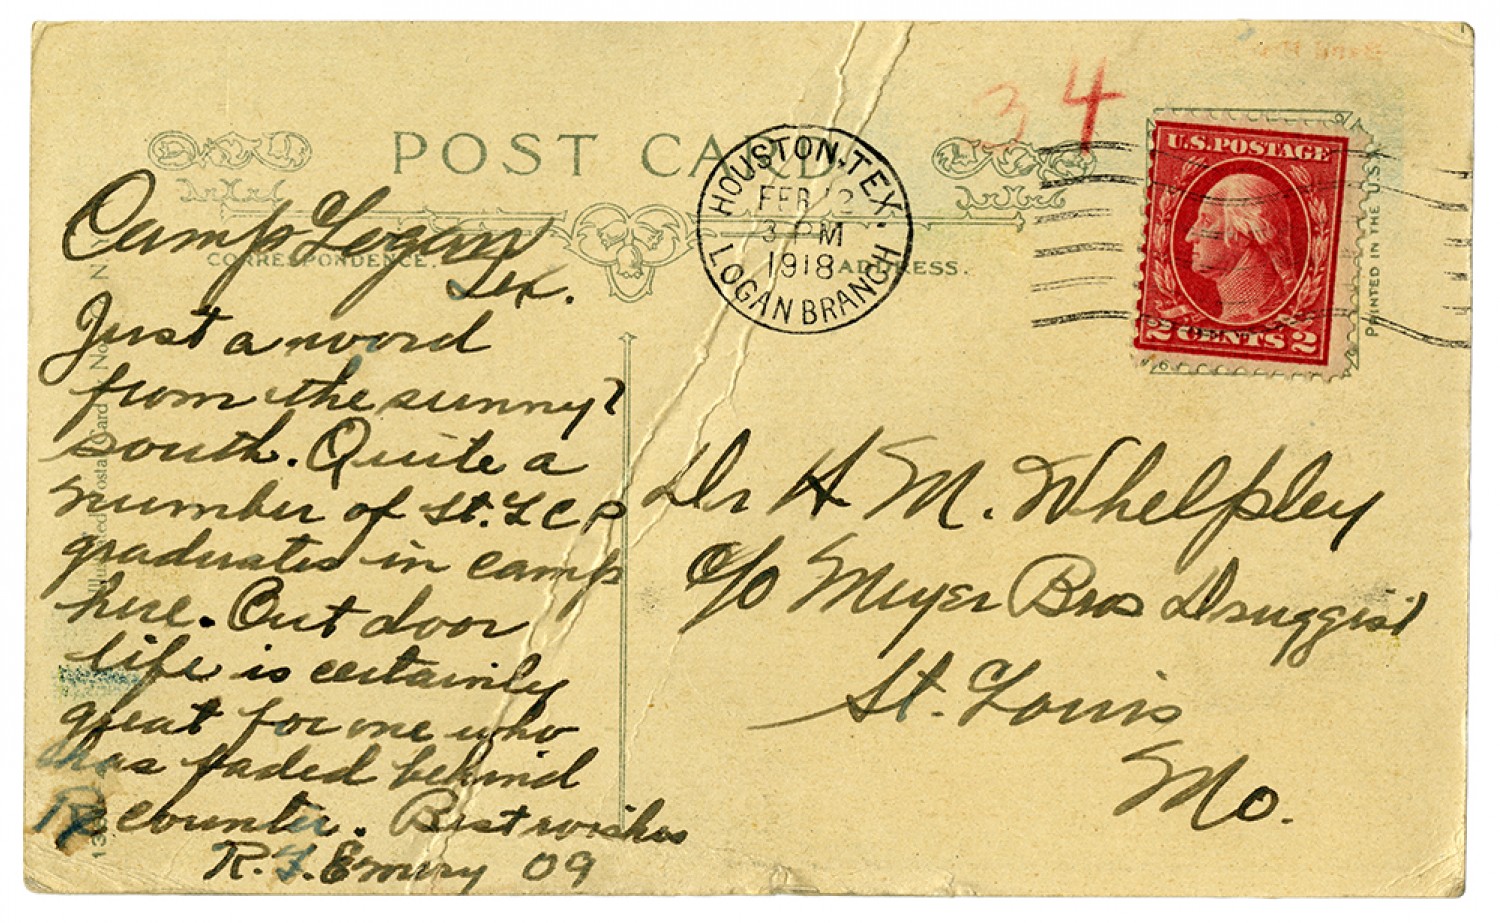 34
POST CARD
HOUSTON, TEX.
FEB 12
3 PM
1918
LOGAN BRANCH
U.S. POSTAGE
2 CENTS 2
PRINTED IN THE U.S.A.
CORRESPONDENCE.
ADDRESS.
Camp Logan
Tex.
Just a word
from the sunny?
south. Quite a
number of St. L C P
graduates in camp
here. Out door
life is certainly
great for one who
has faded behind
counter. Best wishes
R. F. Emury 09
Dr H. M. Whelpley
c/o Meyer Bros Druggist
St. Louis
Mo.